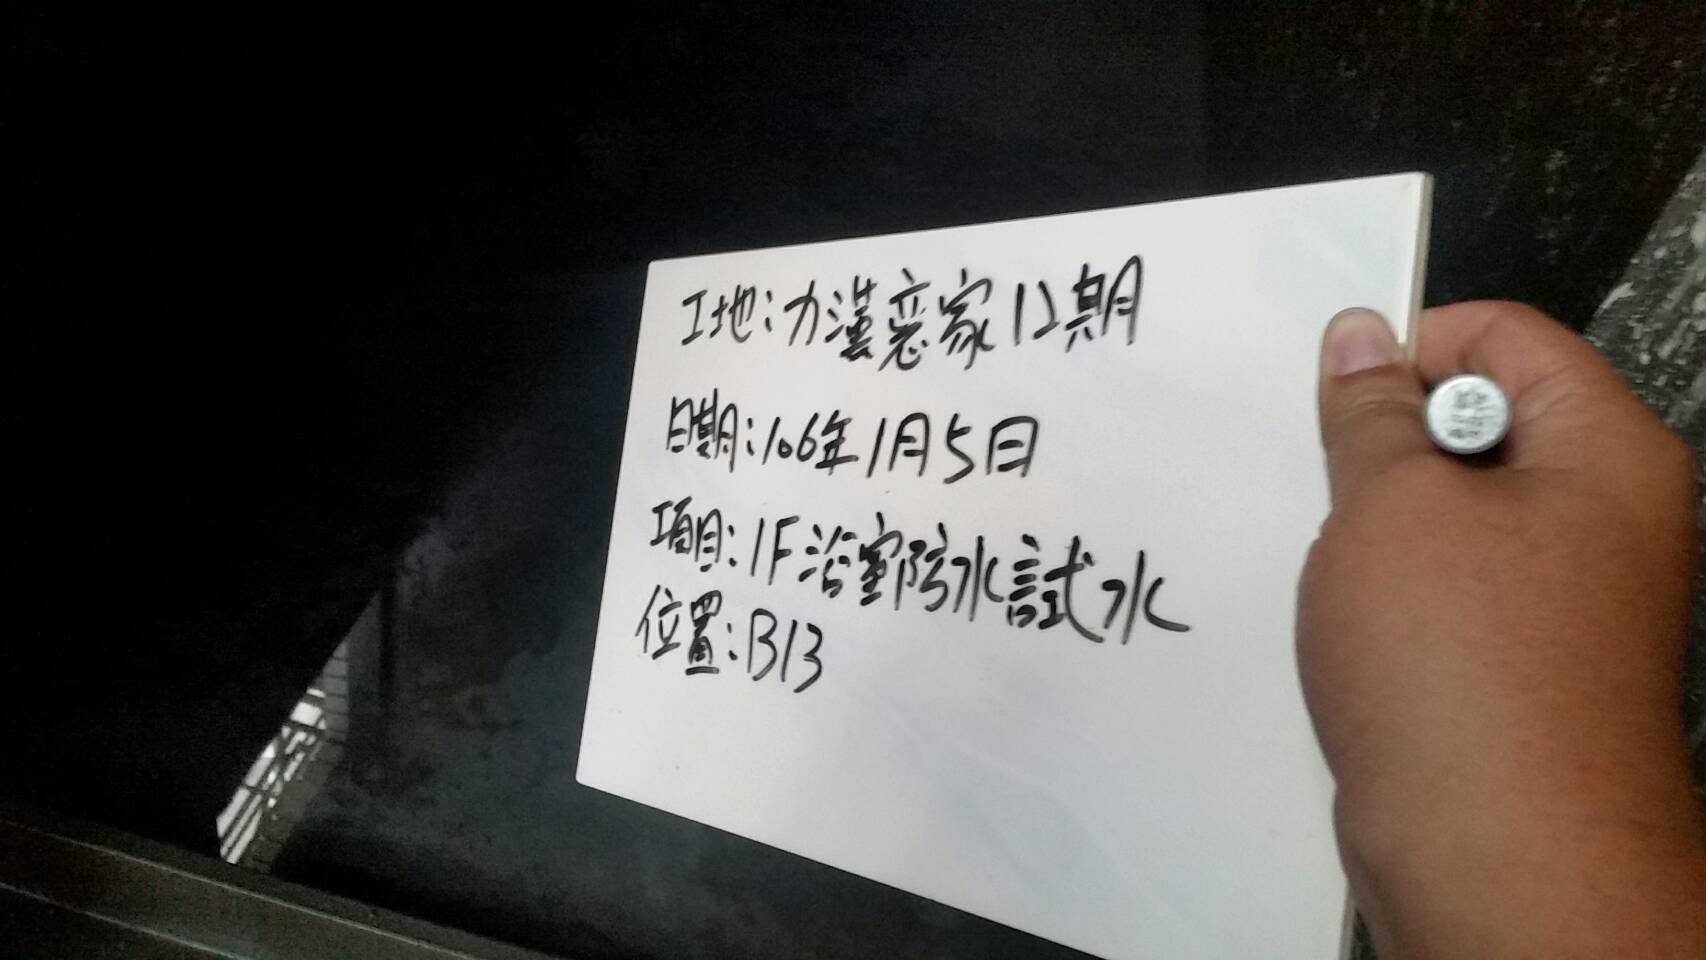 工地:力漢戀家12期
日期:106年1月5日
項目:1F浴室防水試水
位置:B13